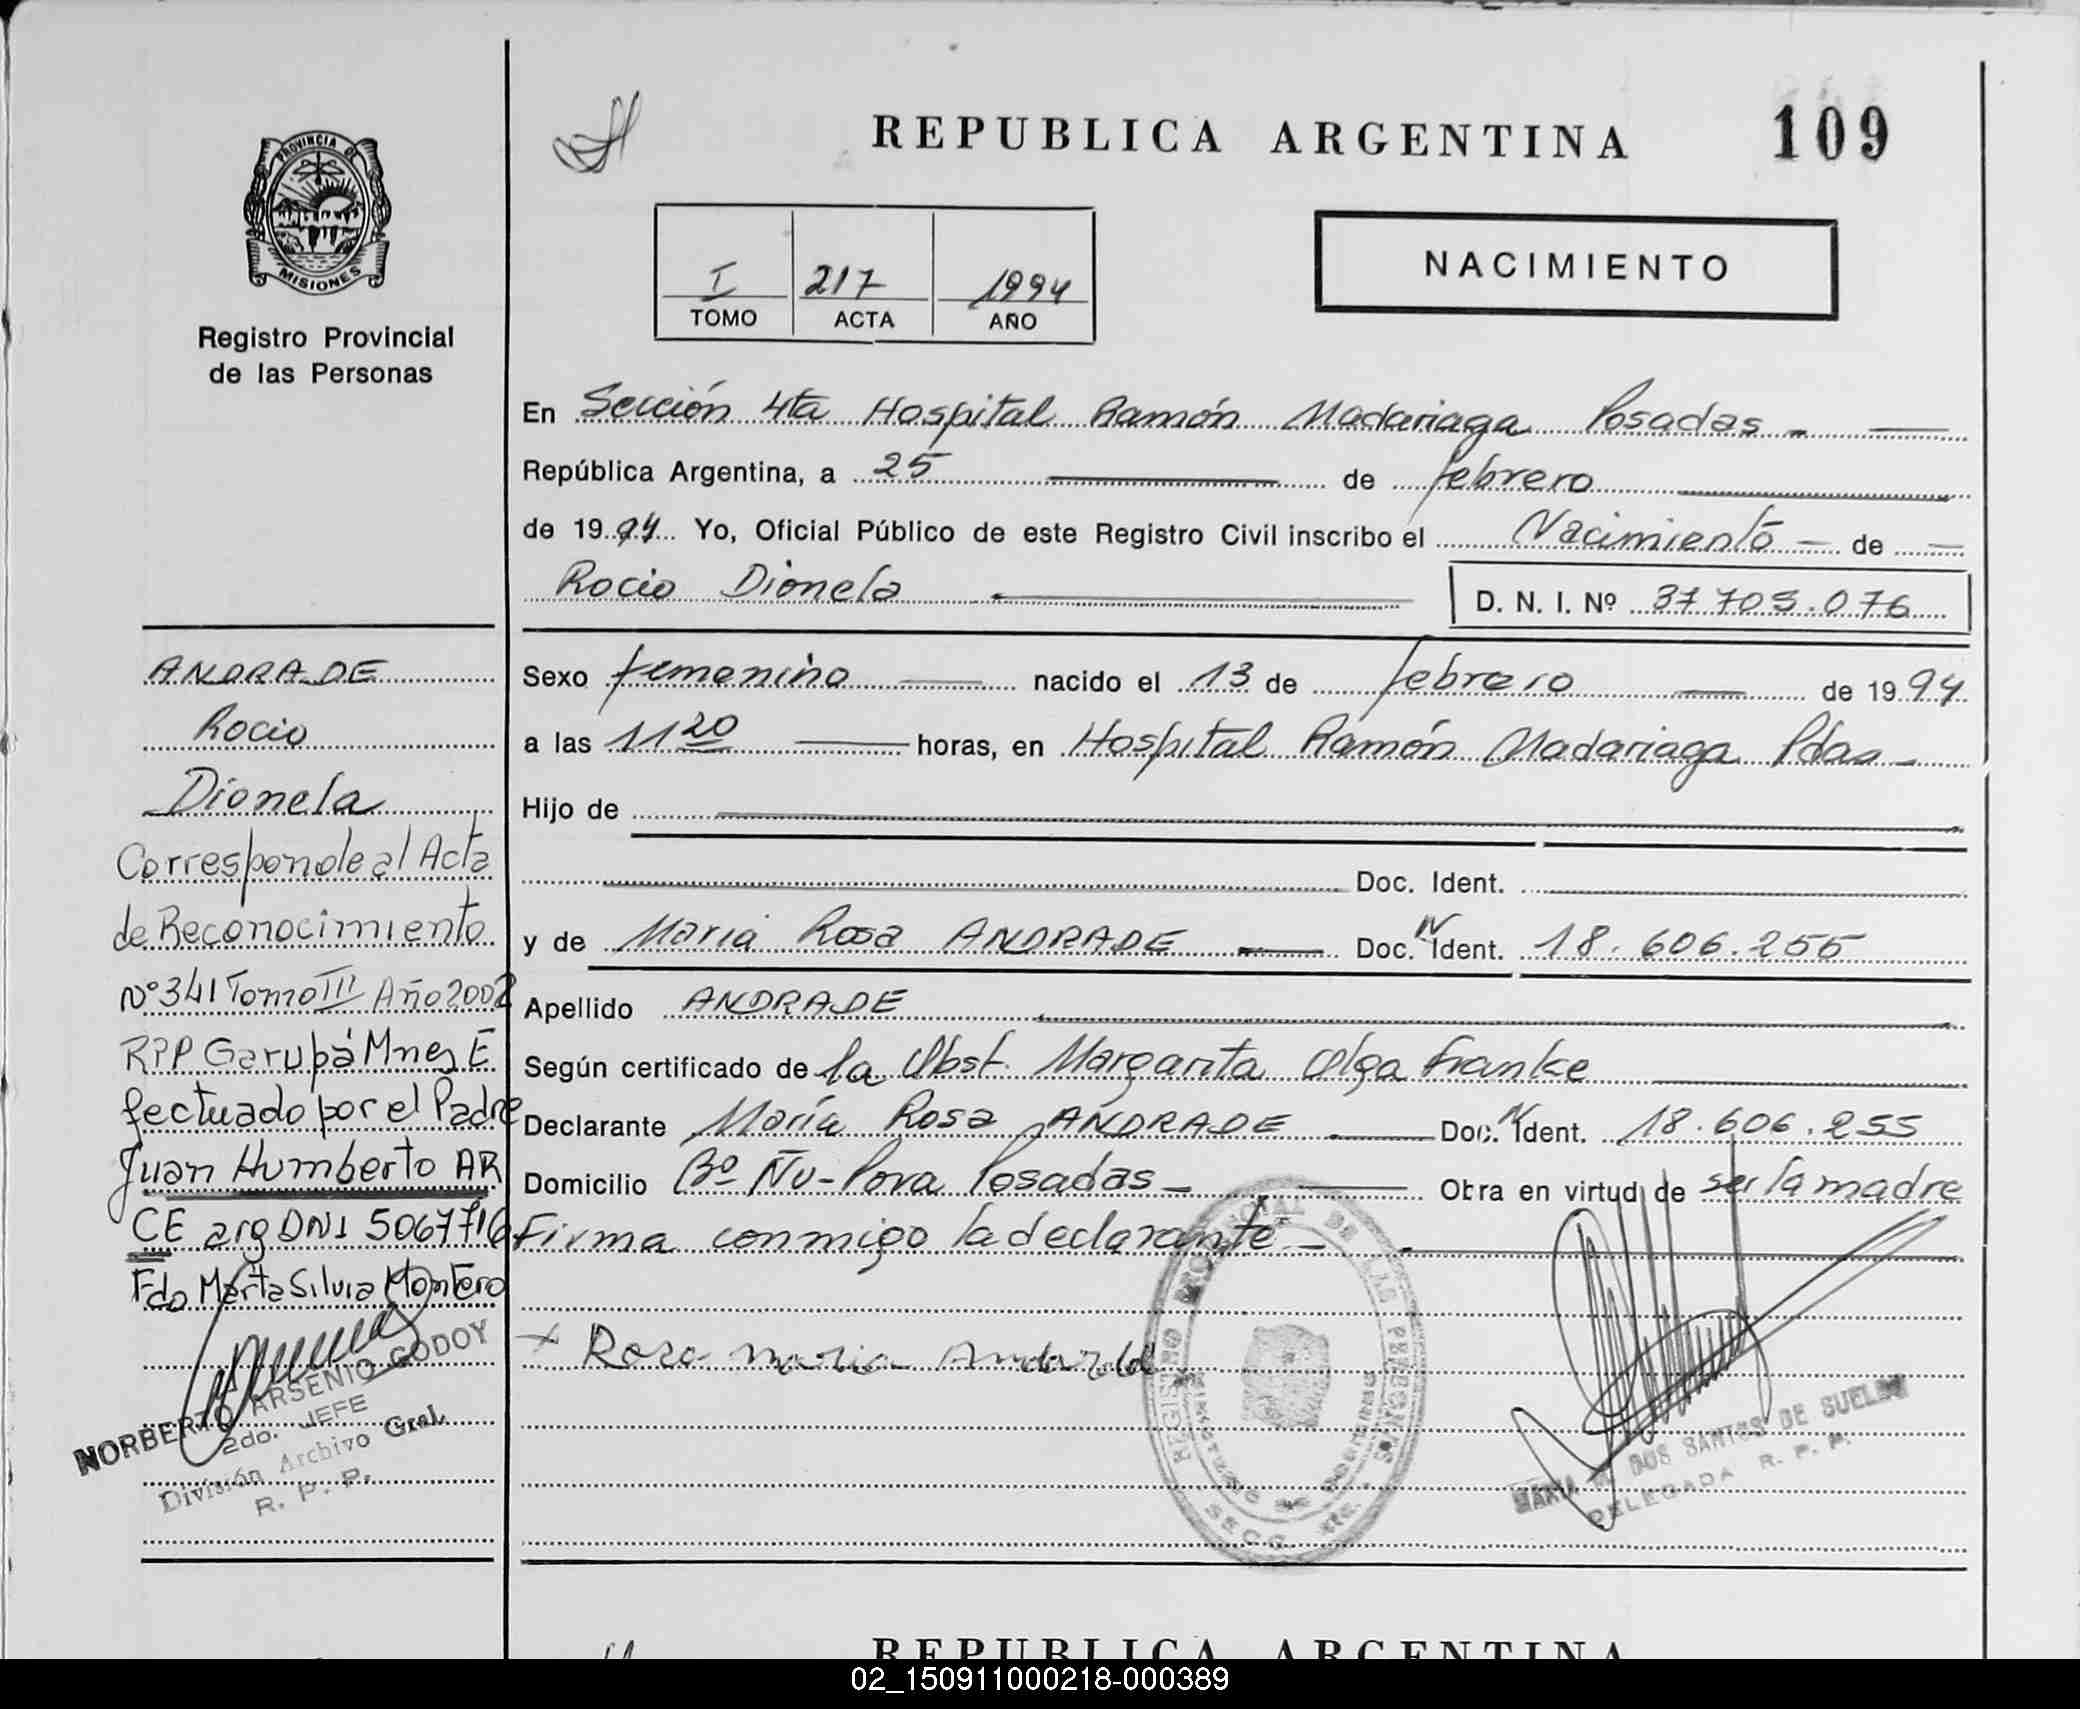 REPUBLICA ARGENTINA
109
PROVINCIA DE
MISIONES
Registro Provincial
de las Personas
I 217 1994
TOMO ACTA AÑO
NACIMIENTO
En Sección 4ta Hospital Ramón Madariaga Posadas -
República Argentina, a 25 de febrero
de 1994 Yo, Oficial Público de este Registro Civil inscribo el Nacimiento de
Rocio Dionela D. N. I. Nº 37.703.076
Sexo femenino nacido el 13 de febrero de 1994
a las 11 20 horas, en Hospital Ramón Madariaga Pdas -
Hijo de
Doc. Ident.
y de Maria Rosa ANDRADE Doc. N Ident. 18.606.255
Apellido ANDRADE
Según certificado de la Obst. Margarita Olga Franke
Declarante María Rosa ANDRADE Doc. N Ident. 18.606.255
Domicilio Bº Ñu-Pora Posadas - Obra en virtud de ser la madre
Firma conmigo la declarante -
ANDRADE
Rocio
Dionela
Corresponde al Acta
de Reconocimiento
Nº 341 Tomo III Año 2002
RPP Garupá Mnes E
fectuado por el Padre
Juan Humberto AR
CE arg DNI 5067716
Fdo Marta Silvia Montero
NORBERTO ARSENIO GODOY
2do. JEFE
División Archivo Gral.
R. P. P.
Rosa Maria
REGISTRO PROVINCIAL DE LAS PERSONAS
MINISTERIO DE GOBIERNO
SECC. 4ta.
MARIA DOS SANTOS DE
DELEGADA R. P. P.
REPUBLICA ARGENTINA
02_150911000218-000389